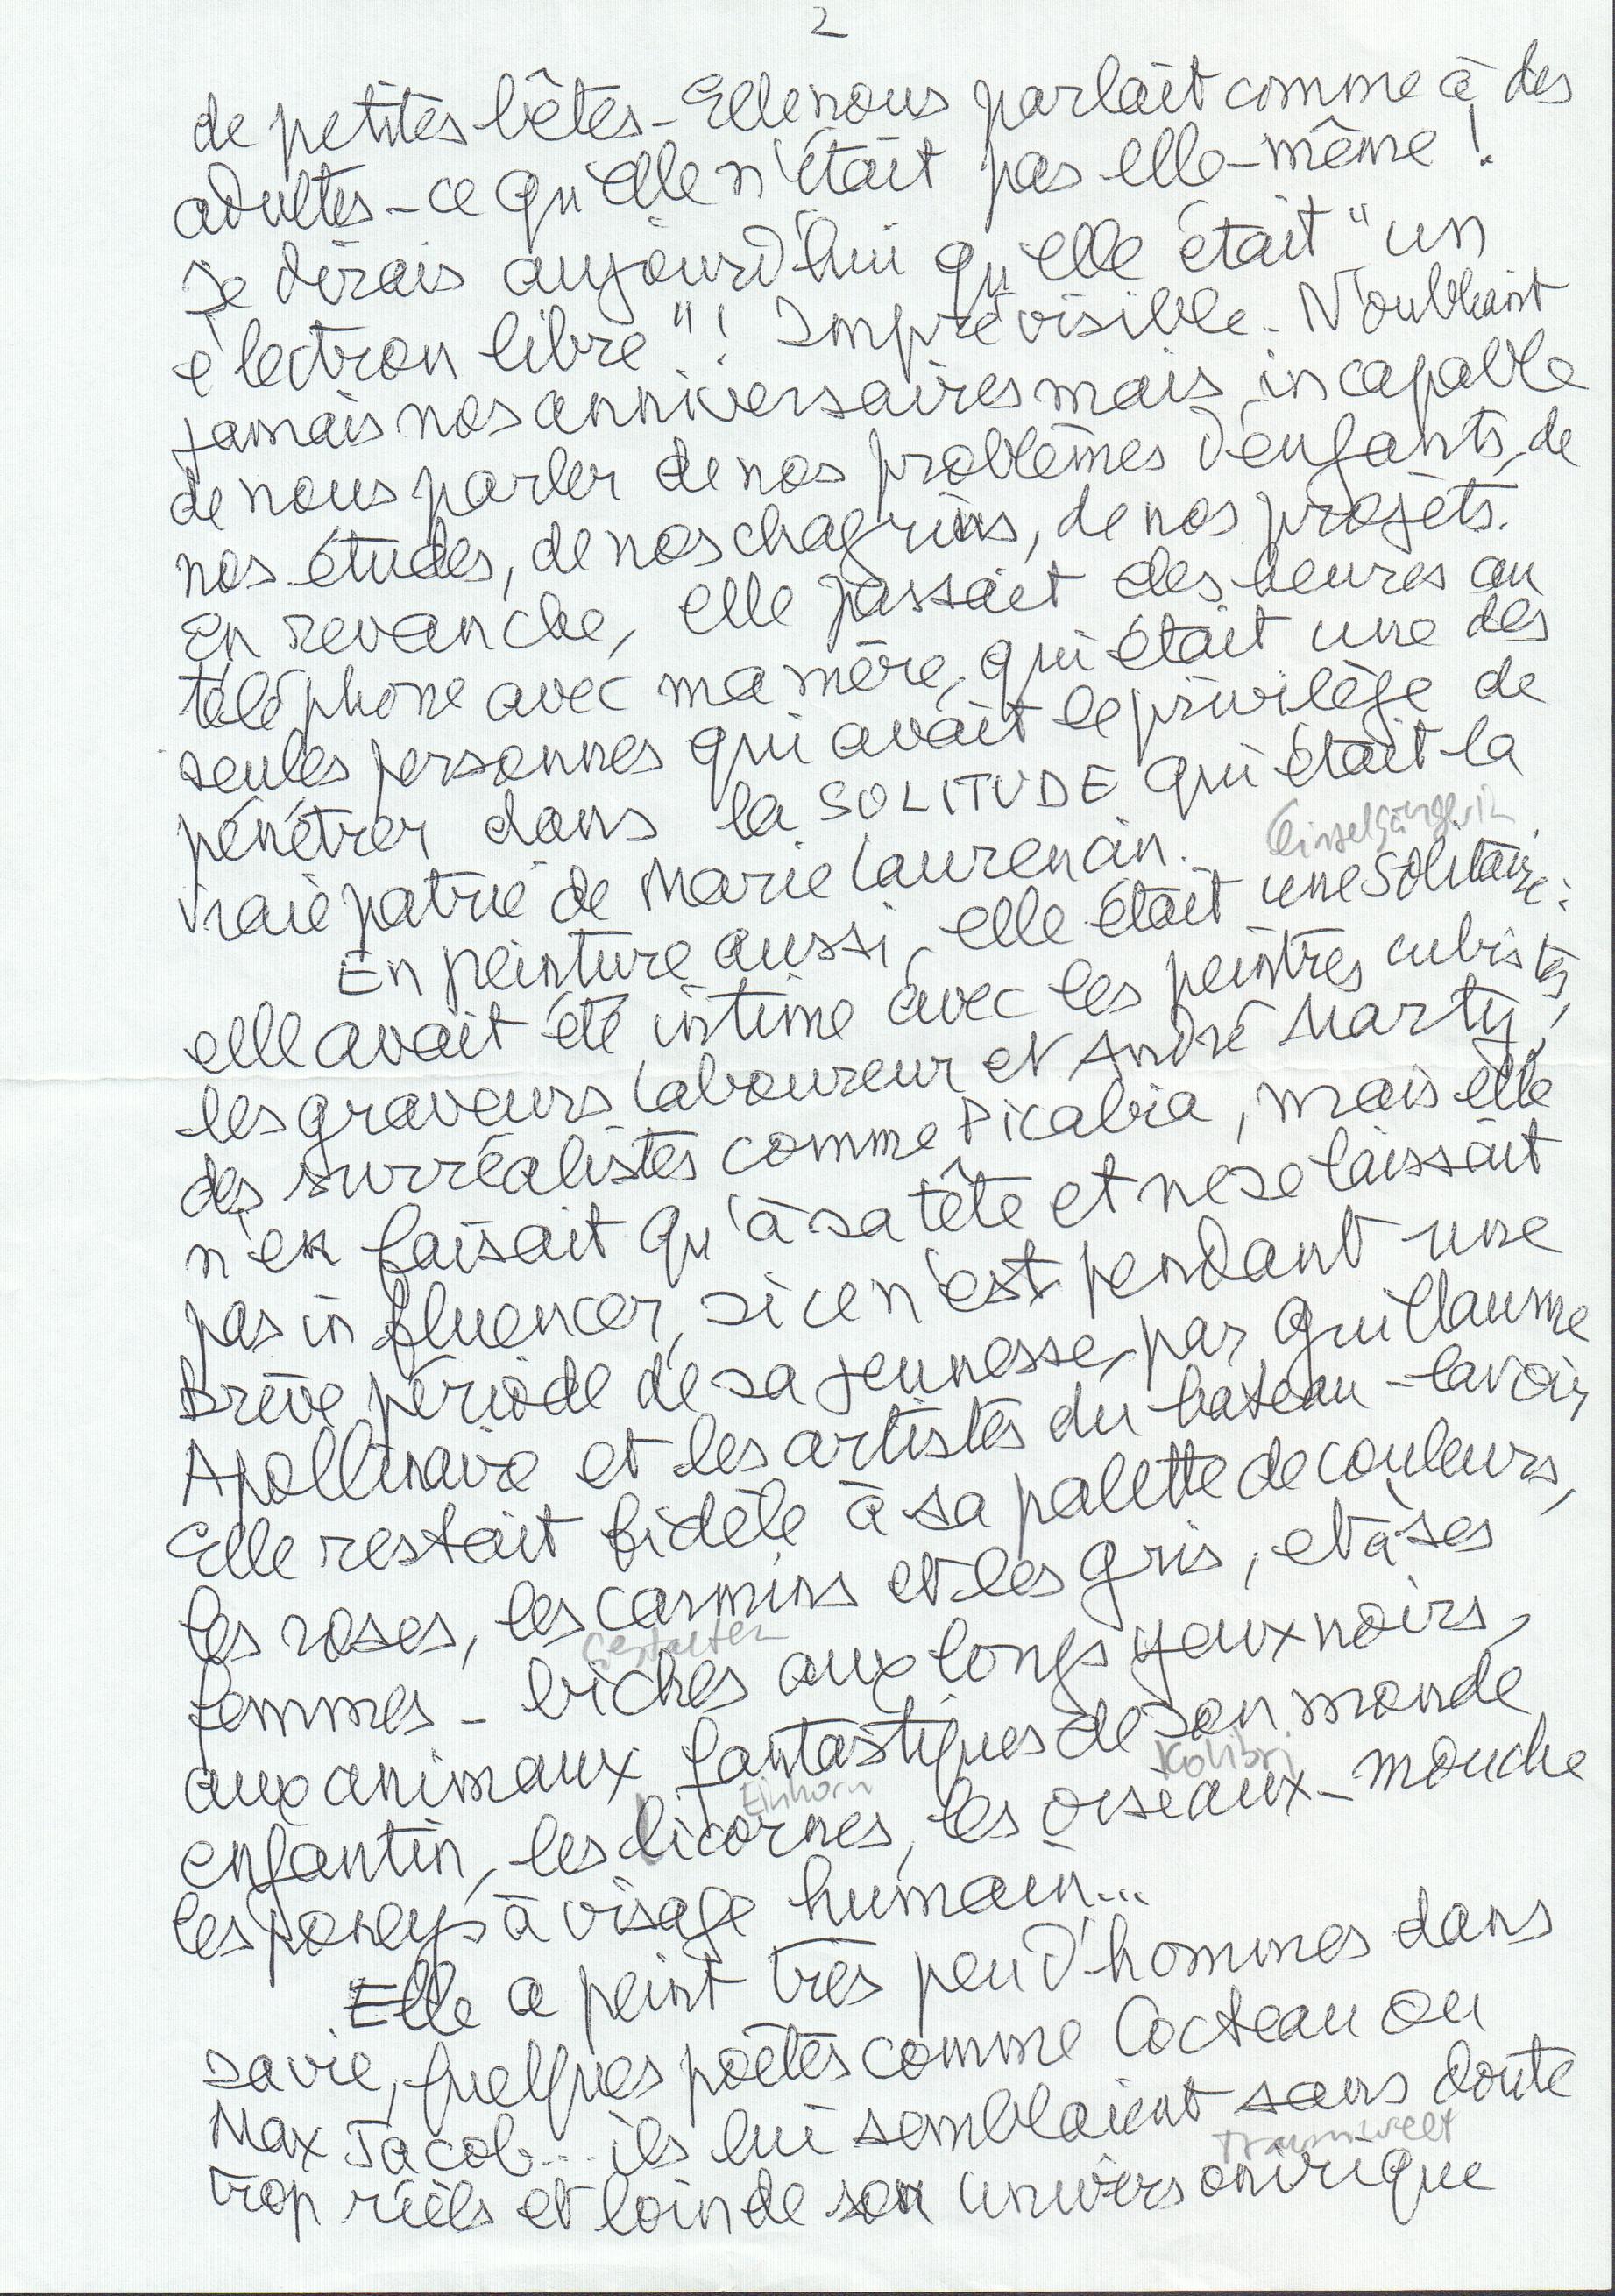 2
de petites bêtes - Elle nous parlait comme à des
adultes - ce qu'elle n'était pas elle-même !
Je dirais aujourd'hui qu'elle était "un
électron libre" ! Imprévisible. N'oubliant
jamais nos anniversaires mais incapable
de nous parler de nos problèmes d'enfants, de
nos études, de nos chagrins, de nos projets.
En revanche, elle passait des heures au
téléphone avec ma mère, qui était une des
seules personnes qui avait le privilège de
pénétrer dans la SOLITUDE qui était la
vraie patrie de Marie Laurencin.
Einzelgängerin
En peinture aussi, elle était une solitaire :
elle avait été intime avec les peintres cubistes,
les graveurs Laboureur et André Marty,
des surréalistes comme Picabia, mais elle
n'en faisait qu'à sa tête et ne se laissait
pas influencer, si ce n'est pendant une
brève période de sa jeunesse, par Guillaume
Apollinaire et les artistes du bateau-lavoir,
Elle restait fidèle à sa palette de couleurs,
les roses, les carmins et les gris, et à ses
Gestalten
femmes - biches aux longs yeux noirs,
aux animaux fantastiques de son monde
Einhorn Kolibri
enfantin, les licornes, les oiseaux-mouche
les poneys à visage humain...
Elle a peint très peu d'hommes dans
sa vie, quelques poètes comme Cocteau ou
Max Jacob... ils lui semblaient sans doute
Traumwelt
trop réels et loin de son univers onirique